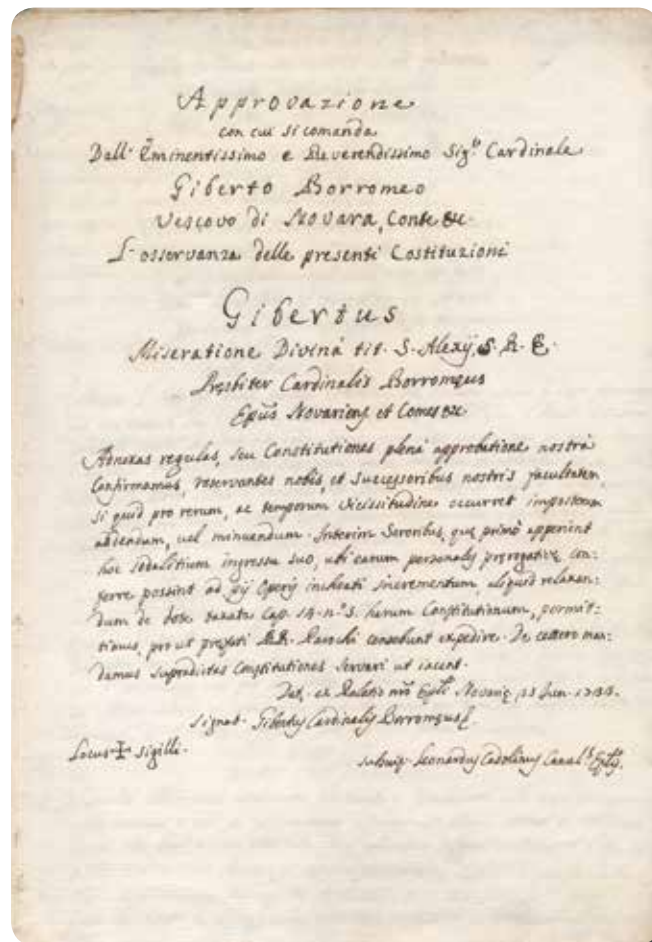 Approvazione
con cui si comanda
Dall' Eminentissimo e Reverendissimo Sig.r Cardinale
Giberto Borromeo
Vescovo di Novara, Conte &c.
L'osservanza delle presenti Costituzioni
Gibertus
Miseratione Divinâ tit. S. Alexij, S. R. E.
Presbiter Cardinalis Borromęus
Epũs Novarien; et Comes &c
Adnexas regulas, seu Constitutiones plenâ approbatione nostrâ
Confirmamus, reservantes nobis, et Successoribus nostris facultatem,
si quid pro rerum, ac temporum vicissitudine occurret impostorum
addendum, vel minuendum. Interim Sororibus, quę primò apperient
hoc sodalitium ingressu suo, ubi earum personales prerogativę con:
ferre possint ad pij Operis incheati incrementum, aliquid relaxan:
dum de dote taxata Cap. 14. n.º 3. harum Constitutionum, permit:
timus, prout prefati RR. Parochi censebunt expedire. De cettero man:
damus supradictas Constitutiones servari ut iacent.
Dat. ex Palatio nrõ Epli Novarię, 11 Jun. 1733.
Signat. Gibertus Cardinalis Borromęus
Locus ✠ Sigilli.
Leonardus